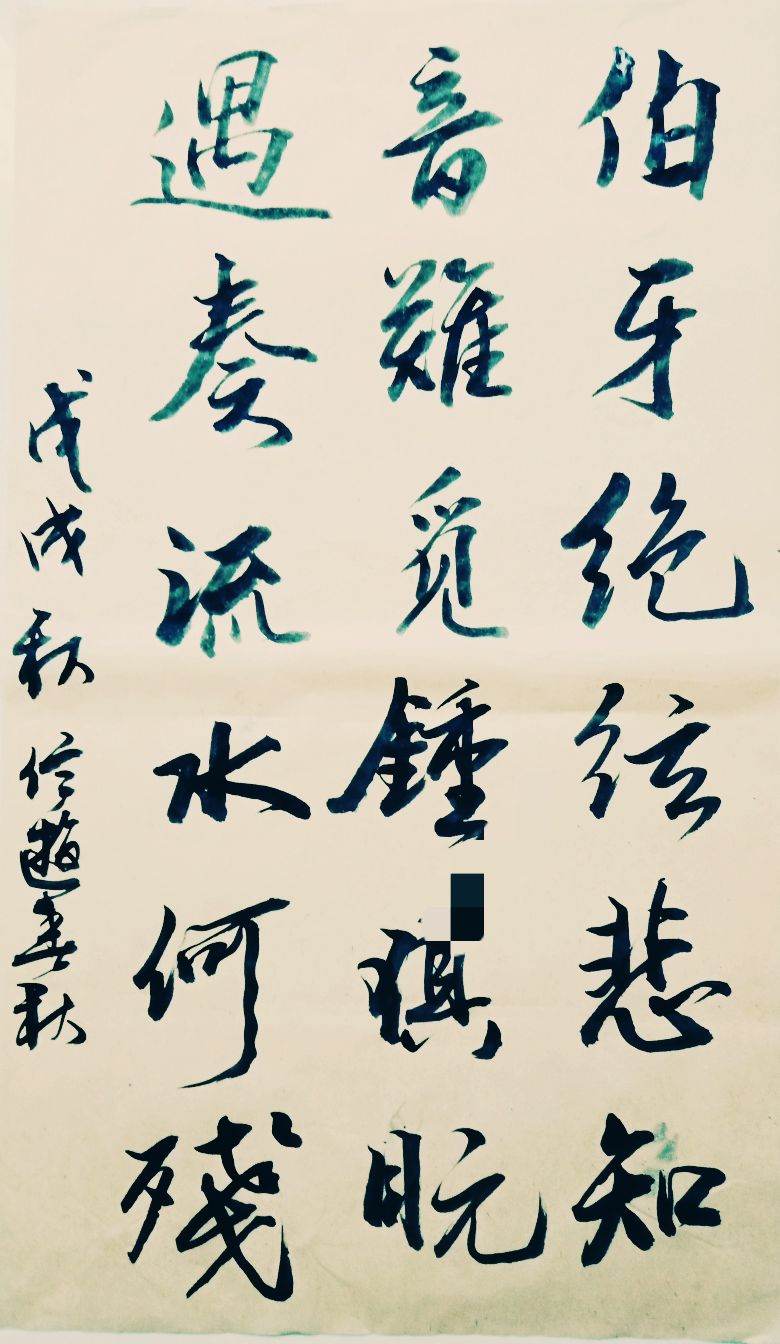 伯牙绝弦悲知
音難觅鍾琪眖
遇奏流水何殘
戊戌秋信遊春秋